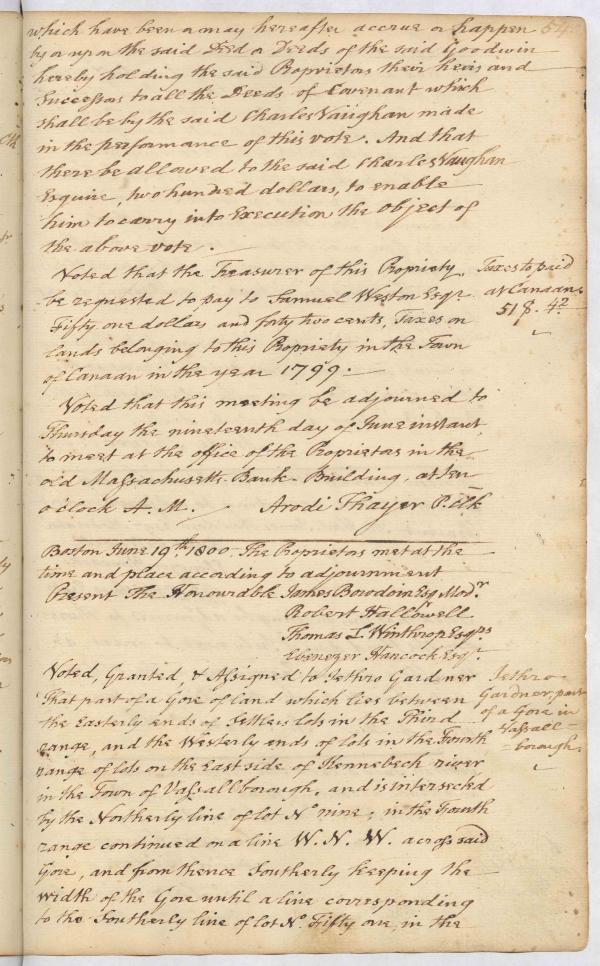 54
which have been or may hereafter accrue or happen
by or upon the said Deed or Deeds of the said Goodwin
hereby holding the said Proprietors their heirs and
Successors to all the Deeds of Covenant which
shall be by the said Charles Vaughan made
in the performance of this vote. And that
there be allowed to the said Charles Vaughan
Esquire, two hundred dollars, to enable
him to carry into Execution the object of
the above vote.
Voted that the Treasurer of this Propriety
be requested to pay to Samuel Weston Esqr
Fifty one dollars and forty two cents, Taxes on
lands belonging to this Propriety in the Town
of Canaan in the year 1799.
Taxes to paid
at Canaan
51 $. 42
Voted that this meeting be adjourned to
Thursday the nineteenth day of June instant
to meet at the office of the Proprietors in the
old Massachusetts Bank Building, at ten
o'clock A. M. Arodi Thayer P. Clk
Boston June 19th 1800. The Proprietors met at the
time and place according to adjournment
Present The Honourable James Bowdoin Esq Modr.
Robert Hallowell
Thomas L Winthrop Esqrs
Ebenezer Hancock Esqr.
Voted, Granted, & Assigned to Jethro Gardner
That part of a Gore of land which lies between
the Easterly ends of Settlers lots in the Third
range, and the Westerly ends of lots in the Fourth
range of lots on the East side of Kennebeck river
in the Town of Vassallborough, and is intersected
by the Northerly line of lot No nine, in the Fourth
range continued on a line W. N. W. across said
Gore, and from thence Southerly keeping the
width of the Gore until a line corresponding
to the Southerly line of lot No. Fifty one, in the
Jethro
Gardner, part
of a Gore in
Vassall-
borough.